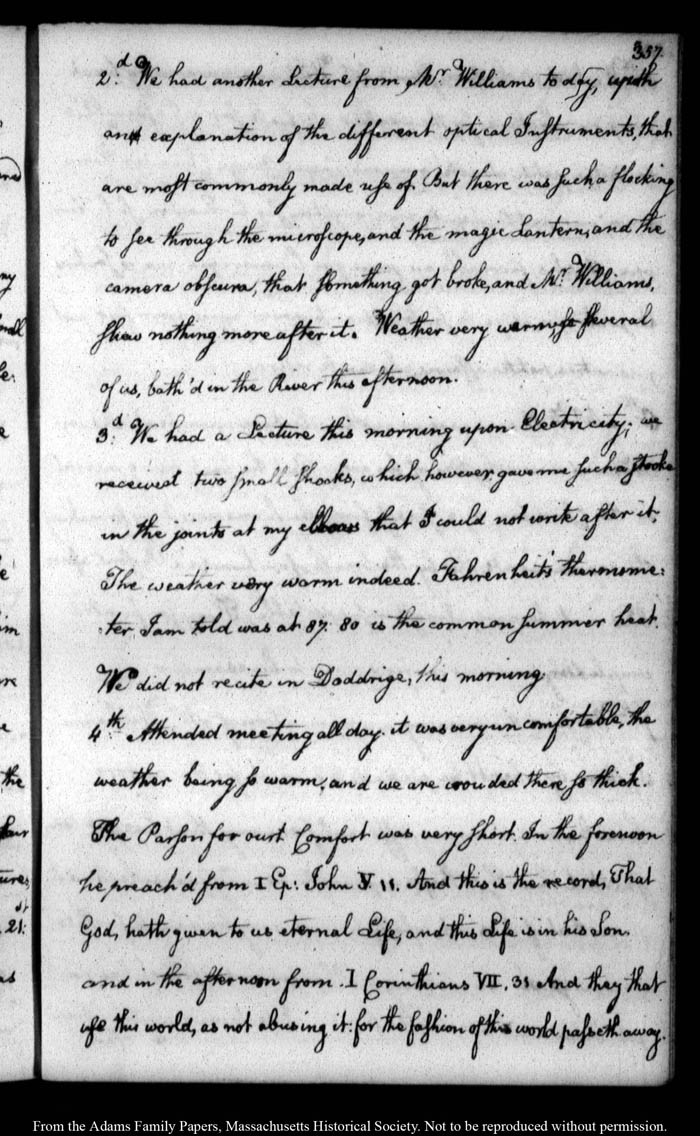 357.
2:d We had another Lecture from Mr. Williams to day, upon
an explanation of the different optical Instruments, that
are most commonly made use of. But there was such a flocking
to see through the microscope, and the magic Lantern, and the
camera obscura, that something got broke, and Mr. Williams,
shew nothing more after it. Weather very warm, so several
of us, bath'd in the River this afternoon.
3:d We had a Lecture this morning upon Electricity; we
received two small shocks, which however, gave me such a stroke
in the joints at my elbows that I could not write after it;
The weather very warm indeed. Fahrenheit's thermome:
:ter, I am told was at 87. 80 is the common summer heat.
We did not recite in Doddrige, this morning
4:th Attended meeting all day. it was very uncomfortable, the
weather being so warm, and we are crouded there so thick.
The Parson for our Comfort was very short. In the forenoon
he preach'd from I Ep: John V. 11. And this is the record, That
God, hath given to us eternal Life, and this Life is in his Son.
and in the afternoon from. I Corinthians VII, 31 And they that
use this world, as not abusing it: for the fashion of this world passeth away.
the
21:
From the Adams Family Papers, Massachusetts Historical Society. Not to be reproduced without permission.